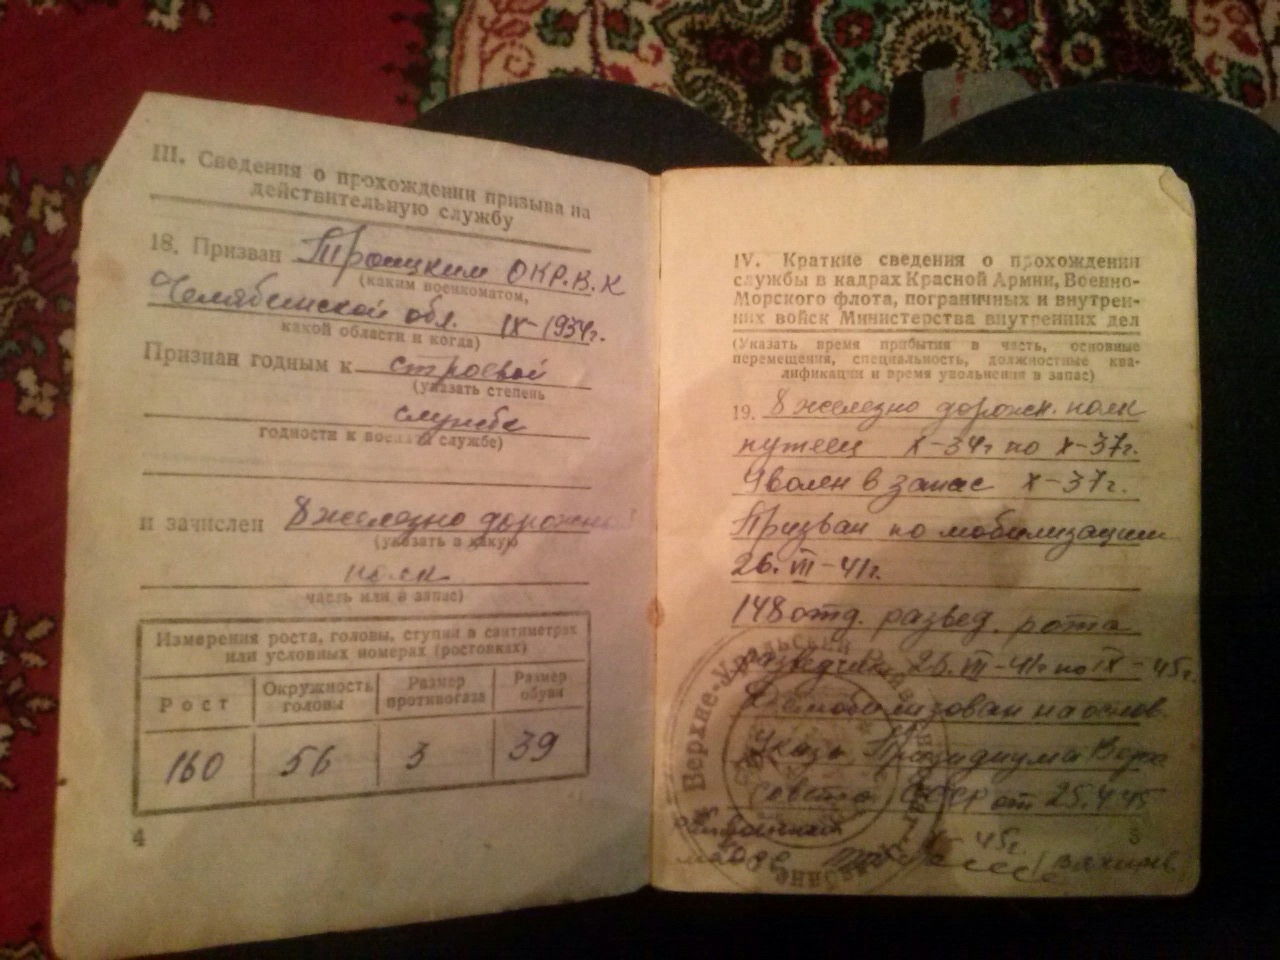 III. Сведения о прохождении призыва на
действительную службу
18. Призван Троицким ОКР.В.К
(каким военкоматом,
Челябинской обл. IX-1934г.
какой области и когда)
Признан годным к строевой
(указать степень
службе
годности к военной службе)
и зачислен 8 железно дорожный
(указать в какую
полк
часть или в запас)
Измерения роста, головы, ступни в сантиметрах
или условных номерах (ростовках)
Рост Окружность головы Размер противогаза Размер обуви
160 56 3 39
4
IV. Краткие сведения о прохождении
службы в кадрах Красной Армии, Военно-
Морского флота, пограничных и внутрен-
них войск Министерства внутренних дел
(Указать время прибытия в часть, основные
перемещения, специальность, должностные ква-
лификации и время увольнения в запас)
19. 8 железно дорожн. полк
путеец X-34г по X-37г.
Уволен в запас X-37г.
Призван по мобилизации
26. VII-41г.
148 отд. развед. рота
разведчик 26. VII-41г по IX-45г.
Демобилизован на основ.
Указа Президиума Верх
совета СССР от 25.
X-45г.
5
Верхне-Уральский